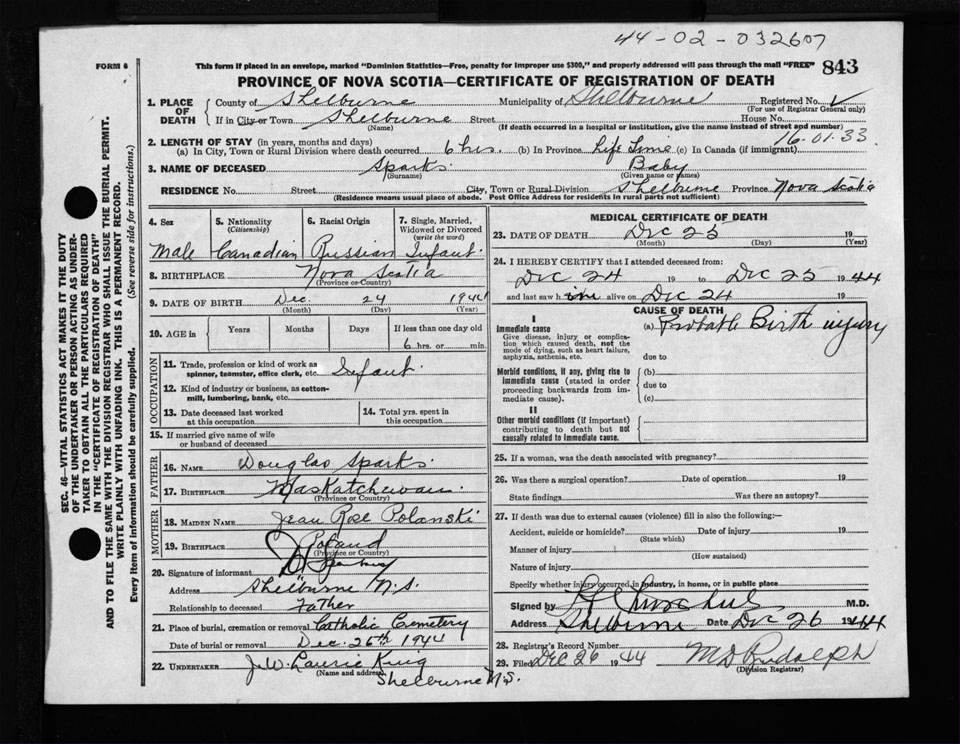 44-02-032607
FORM 6
This form if placed in an envelope, marked "Dominion Statistics—Free, penalty for improper use $300," and properly addressed will pass through the mail "FREE" 843
PROVINCE OF NOVA SCOTIA—CERTIFICATE OF REGISTRATION OF DEATH
1. PLACE OF DEATH
County of Shelburne Municipality of Shelburne Registered No.
(For use of Registrar General only)
If in City or Town Shelburne Street House No.
(Name) (If death occurred in a hospital or institution, give the name instead of street and number)
16.01.33
2. LENGTH OF STAY (in years, months and days)
(a) In City, Town or Rural Division where death occurred 6 hrs. (b) In Province Life Time (c) In Canada (if immigrant)
3. NAME OF DECEASED Sparks Baby
(Surname) (Given name or names)
RESIDENCE No. Street City, Town or Rural Division Shelburne Province Nova Scotia
(Residence means usual place of abode. Post Office Address for residents in rural parts not sufficient)
4. Sex 5. Nationality (Citizenship) 6. Racial Origin 7. Single, Married, Widowed or Divorced (write the word)
Male Canadian Russian Infant
8. BIRTHPLACE Nova Scotia
(Province or Country)
9. DATE OF BIRTH Dec. 24 1944
(Month) (Day) (Year)
10. AGE in Years Months Days If less than one day old
6 hrs. or min.
OCCUPATION
11. Trade, profession or kind of work as spinner, teamster, office clerk, etc. Infant
12. Kind of industry or business, as cotton-mill, lumbering, bank, etc.
13. Date deceased last worked at this occupation
14. Total yrs. spent in this occupation
15. If married give name of wife or husband of deceased
FATHER
16. NAME Douglas Sparks
17. BIRTHPLACE Maskatchewan
(Province or Country)
MOTHER
18. MAIDEN NAME Jean Rose Polanski
19. BIRTHPLACE Poland
(Province or Country)
20. Signature of informant D Sparks
Address Shelburne N.S.
Relationship to deceased Father
21. Place of burial, cremation or removal Catholic Cemetery
Date of burial or removal Dec. 26th 1944
22. UNDERTAKER J.W. Laurie King
(Name and address) Shelburne N.S.
MEDICAL CERTIFICATE OF DEATH
23. DATE OF DEATH Dec 25 19
(Month) (Day) (Year)
24. I HEREBY CERTIFY that I attended deceased from:
Dec 24 19 to Dec 25 1944
and last saw h im alive on Dec 24 19
CAUSE OF DEATH
I
Immediate cause (a) Probable Birth injury
Give disease, injury or complication which caused death, not the mode of dying, such as heart failure, asphyxia, asthenia, etc.
due to
Morbid conditions, if any, giving rise to immediate cause (stated in order proceeding backwards from immediate cause).
(b)
due to
(c)
II
Other morbid conditions (if important) contributing to death but not causally related to immediate cause.
25. If a woman, was the death associated with pregnancy?
26. Was there a surgical operation? Date of operation 19
State findings Was there an autopsy?
27. If death was due to external causes (violence) fill in also the following:—
Accident, suicide or homicide? Date of injury 19
(State which)
Manner of injury
(How sustained)
Nature of injury
Specify whether injury occurred in industry, in home, or in public place
Signed by M.D.
Address Shelburne Date Dec 26 1944
28. Registrar's Record Number
29. Filed Dec 26 1944 MD Rudolph
(Division Registrar)
SEC. 46—VITAL STATISTICS ACT MAKES IT THE DUTY
OF THE UNDERTAKER OR PERSON ACTING AS UNDER-
TAKER TO OBTAIN ALL THE PARTICULARS REQUIRED
IN THE "CERTIFICATE OF REGISTRATION OF DEATH"
AND TO FILE THE SAME WITH THE DIVISION REGISTRAR WHO SHALL ISSUE THE BURIAL PERMIT.
WRITE PLAINLY WITH UNFADING INK. THIS IS A PERMANENT RECORD.
Every item of information should be carefully supplied. (See reverse side for instructions.)